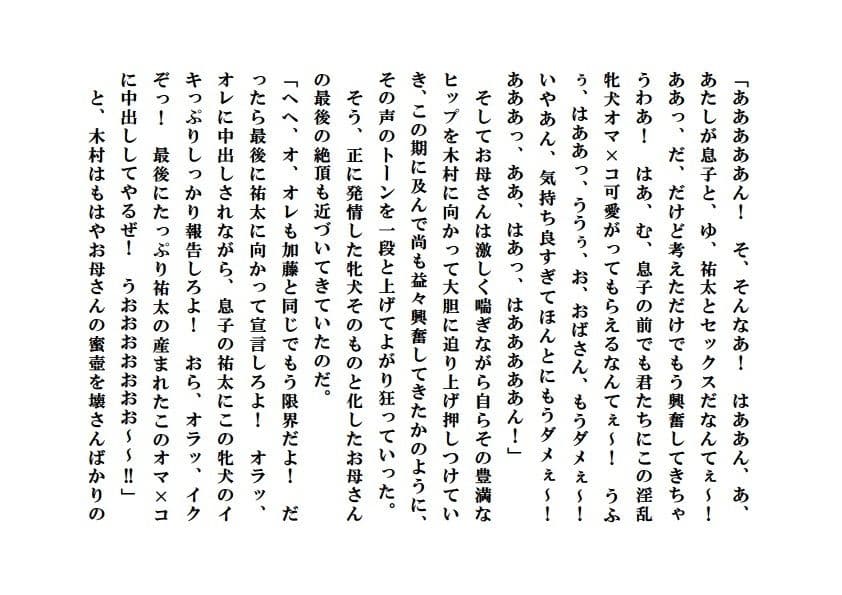 「あああああん！　そ、そんなあ！　はああん、あ、
あたしが息子と、ゆ、祐太とセックスだなんてぇ～！
ああっ、だ、だけど考えただけでもう興奮してきちゃ
うわあ！　はあ、む、息子の前でも君たちにこの淫乱
牝犬オマ×コ可愛がってもらえるなんてぇ～！　うふ
ぅ、はああっ、ううぅ、お、おばさん、もうダメぇ～！
いやあん、気持ち良すぎてほんとにもうダメぇ～！
あああっ、ああ、はあっ、はあああああん！」
　そしてお母さんは激しく喘ぎながら自らその豊満な
ヒップを木村に向かって大胆に迫り上げ押しつけてい
き、この期に及んで尚も益々興奮してきたかのように、
その声のトーンを一段と上げてよがり狂っていった。
　そう、正に発情した牝犬そのものと化したお母さん
の最後の絶頂も近づいてきていたのだ。
「へへ、オ、オレも加藤と同じでもう限界だよ！　だ
ったら最後に祐太に向かって宣言しろよ！　オラッ、
オレに中出しされながら、息子の祐太にこの牝犬のイ
キっぷりしっかり報告しろよ！　おら、オラッ、イク
ぞっ！　最後にたっぷり祐太の産まれたこのオマ×コ
に中出ししてやるぜ！　うおおおおおおお～～!!」
　と、木村はもはやお母さんの蜜壺を壊さんばかりの